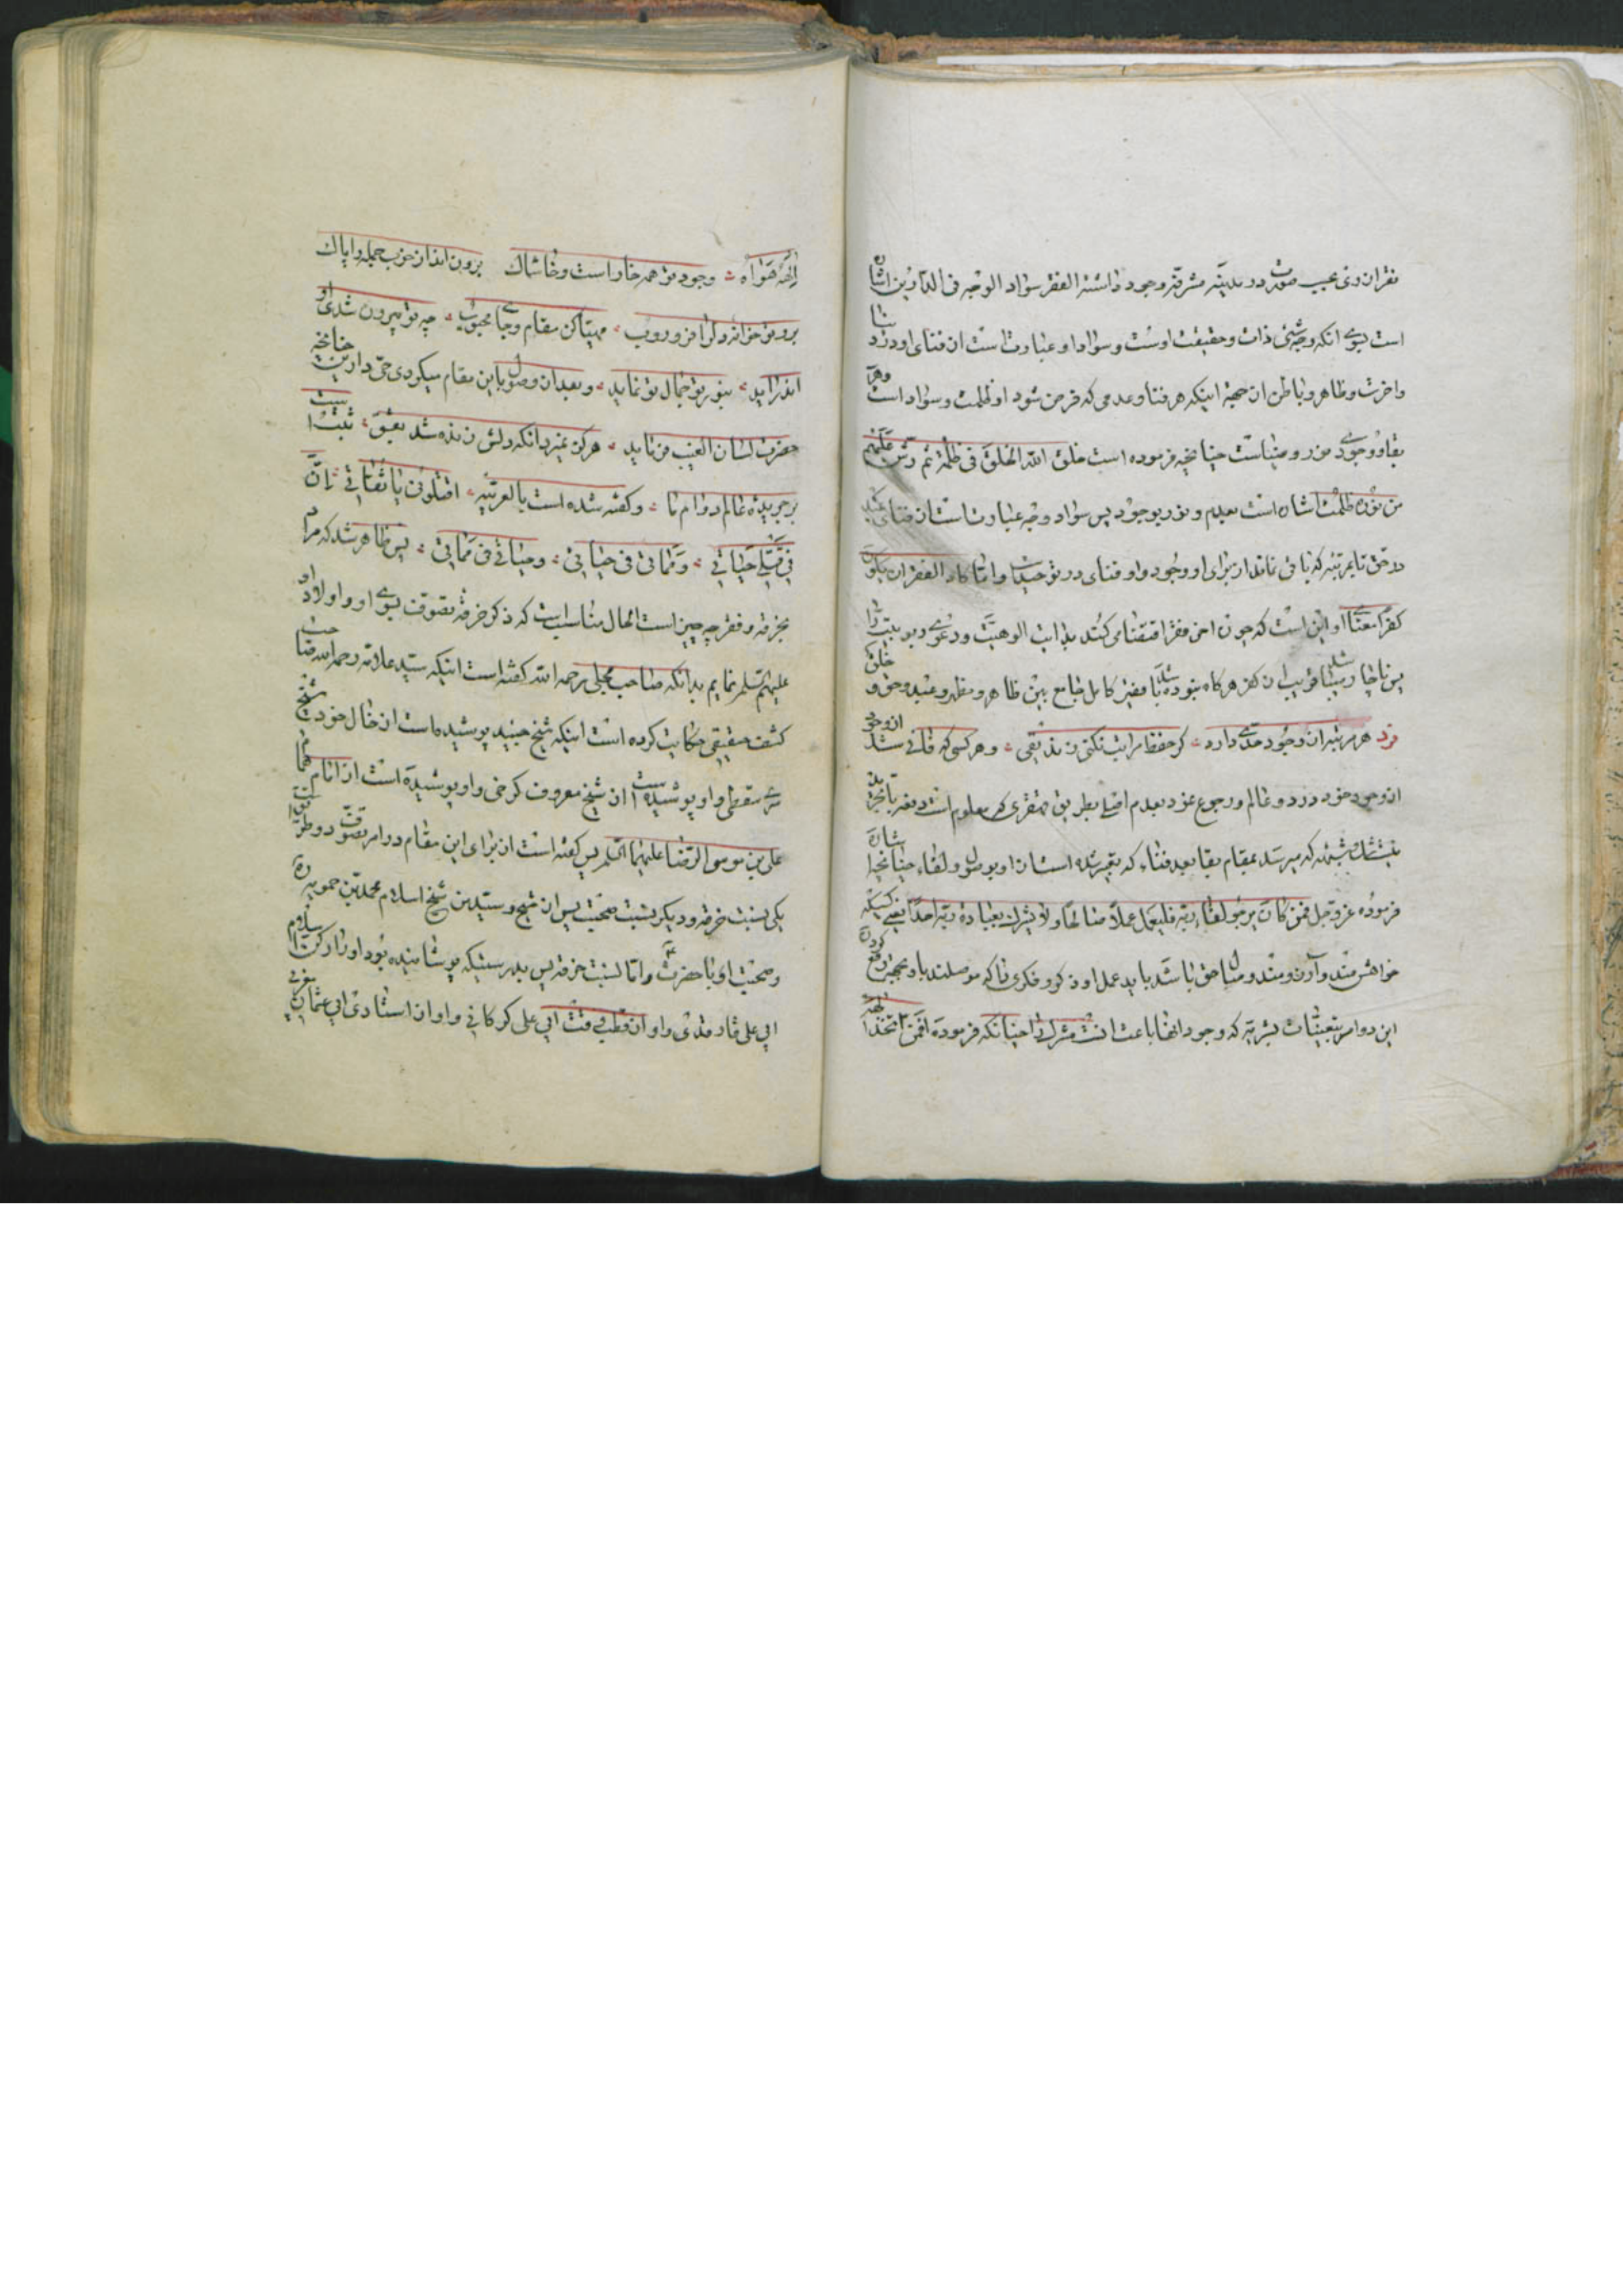 فقر ان روی عیب صورت در مدینه مشرفه وجود داشته الفقر سواد الوجه فی الدارین اشاره
است بسوی انکه وجه شیٔ ذات و حقیقت اوست و سواد او عبارت است از فنای او در دنیا
و اخرت و ظاهر و باطن از جهة اینکه هر فنا و عدمی که فرض شود او ظلمت و سواد است و هر
بقا و وجودی نور و ضیاست چنانچه فرموده است خلق الله الخلق فی ظلمة ثم رش علیهم
من نوره ظلمت اشاره است بعدم و نور بوجود پس سواد وجه عبارت است از فنای عبد
در حق تا بمرتبه که باقی نماند از برای او وجود و او فنای در توحید است و اما کاد الفقر ان یکون
کفرا معنای او این است که چون
پس ناچار هرگاه بنوده باشد فقیر کامل جامع بین ظاهر و مظهر و عبد و حق و خلق
فرد هر مرتبه از وجود حدی دارد کر حفظ مراتب نکنی زندیقی و هر کسی که فانی شد از وجود
از وجود خود در دو عالم و رجوع نمود بعدم اصلی بطریق فقری که معلوم است
که میرسد بمقام بقا بعد فناء که تعبیر شده است از او بوصول و لقاء چنانچه اشاره
فرموده عز و جل فمن کان یرجو لقاء ربه فلیعمل عملا صالحا ولا یشرک بعبادة ربه احدا یعنی کسیکه
خواهش مند و آرزومند وصال حق باشد باید عمل او ذکر و فکری
این دوام تعینات بشریه که وجود انها باعث است مشرک را چنانکه فرموده افمن اتخذ الهه
الهه هواه وجود تو همه خار است و خاشاک برون انداز خوب جمله را پاک
برو تو خوانه دل را فرو روب مهیا کن مقام و جای محبوب چه تو بیرون شدی او
اندر اید بتو بی تو جمال تو نماید و بعد از وصول باین مقام میکردی حی دارین چنانچه
حضرت لسان الغیب فرماید هرکز نمیرد انکه دلش زنده شد بعشق ثبت است
بر جریده عالم دوام ما و کفته شده است بالعربیه اقتلونی یا ثقاتی ان
فی قتلی حیاتی و مماتی فی حیاتی و حیاتی فی مماتی پس ظاهر شد که مراد
بخرقه و فقر چه چیز است الحال مناسب است که ذکر خرقه تصوف بسوی او و اولاد او
علیهم السلم نمایم بدانکه صاحب مجلی رحمه الله کفته است اینکه سید علامه رحمه الله صاحب
کشف حقیقی حکایت کرده است اینکه شیخ جنید پوشیده است از خال خود شیخ
سری سقطی و او پوشیده است از شیخ معروف کرخی و او پوشیده است از امام همام
علی بن موسی الرضا علیهما السلم پس کفته است از برای این مقام دو امر تصوف دو طریق است
یکی نسبت خرقه و دیکر نسبت صحبت پس از شیخ و سید بن شیخ اسلام محمد بن حمویه ره
و صحبت او با حضرت و اما نسبت خرقه پس بدرستیکه پوشانیده بود او را رکن اسلام
ابی علی فارمدی و او از قطب وقت ابی علی کرکانی و او از استادی ابی عثمان مغربی